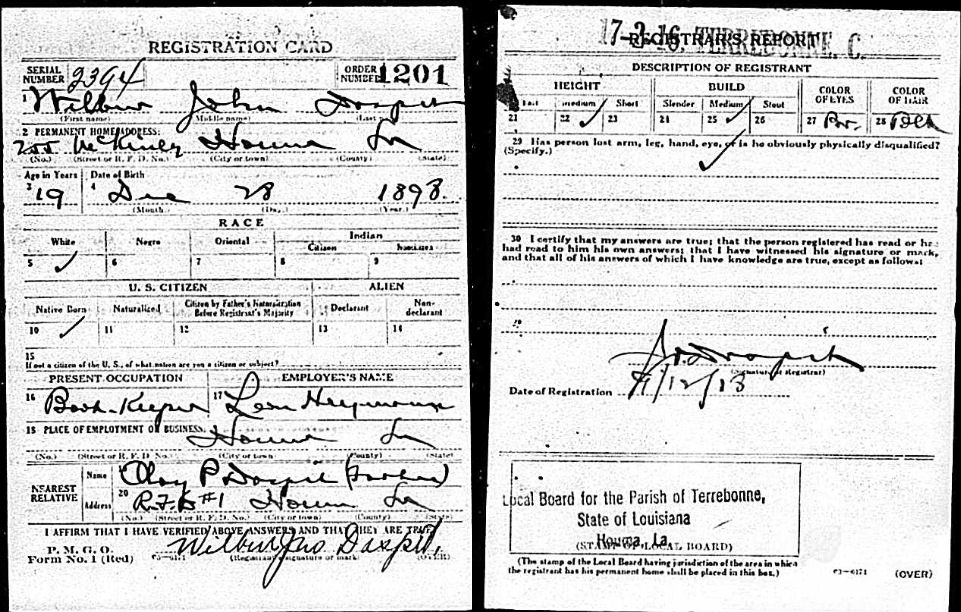 REGISTRATION CARD
SERIAL NUMBER 2394 ORDER NUMBER 1201
1 Wilbur John Dospit
(First name) (Middle name) (Last name)
2 PERMANENT HOME ADDRESS:
255 McKinley Houma La
(No.) (Street or R. F. D. No.) (City or town) (County) (State)
Age in Years Date of Birth
3 19 4 Dec 28 1898.
(Month) (Day) (Year)
RACE
White Negro Oriental Indian
Citizen Noncitizen
5 ✓ 6 7 8 9
U. S. CITIZEN ALIEN
Native Born Naturalized Citizen by Father's Naturalization Before Registrant's Majority Declarant Non-declarant
10 ✓ 11 12 13 14
15
If not a citizen of the U. S., of what nation are you a citizen or subject?
PRESENT OCCUPATION EMPLOYER'S NAME
16 Book-Keeper 17 Leon
18 PLACE OF EMPLOYMENT OR BUSINESS:
Houma La
(No.) (Street or R. F. D. No.) (City or town) (County) (State)
NEAREST RELATIVE Name P Dospit
Address 20 R.F.D #1 Houma La
(No.) (Street or R. F. D. No.) (City or town) (County) (State)
I AFFIRM THAT I HAVE VERIFIED ABOVE ANSWERS AND THAT THEY ARE TRUE
P. M. G. O.
Form No. 1 (Red) Wilbur Jno Dospit,
(Registrant's signature or mark) (OVER)
17-3-16. TERREBONNE. C.
REGISTRAR'S REPORT
DESCRIPTION OF REGISTRANT
HEIGHT BUILD COLOR OF EYES COLOR OF HAIR
Tall Medium Short Slender Medium Stout
21 22 ✓ 23 24 25 ✓ 26 27 Br. 28 Blk
29 Has person lost arm, leg, hand, eye, or is he obviously physically disqualified?
(Specify.)
30 I certify that my answers are true; that the person registered has read or has
had read to him his own answers; that I have witnessed his signature or mark,
and that all of his answers of which I have knowledge are true, except as follows:
Dospit
(Signature of Registrar)
Date of Registration 9/12/18
Local Board for the Parish of Terrebonne,
State of Louisiana
Houma, La.
(STAMP OF LOCAL BOARD)
(The stamp of the Local Board having jurisdiction of the area in which
the registrant has his permanent home shall be placed in this box.)
63-6171 (OVER)